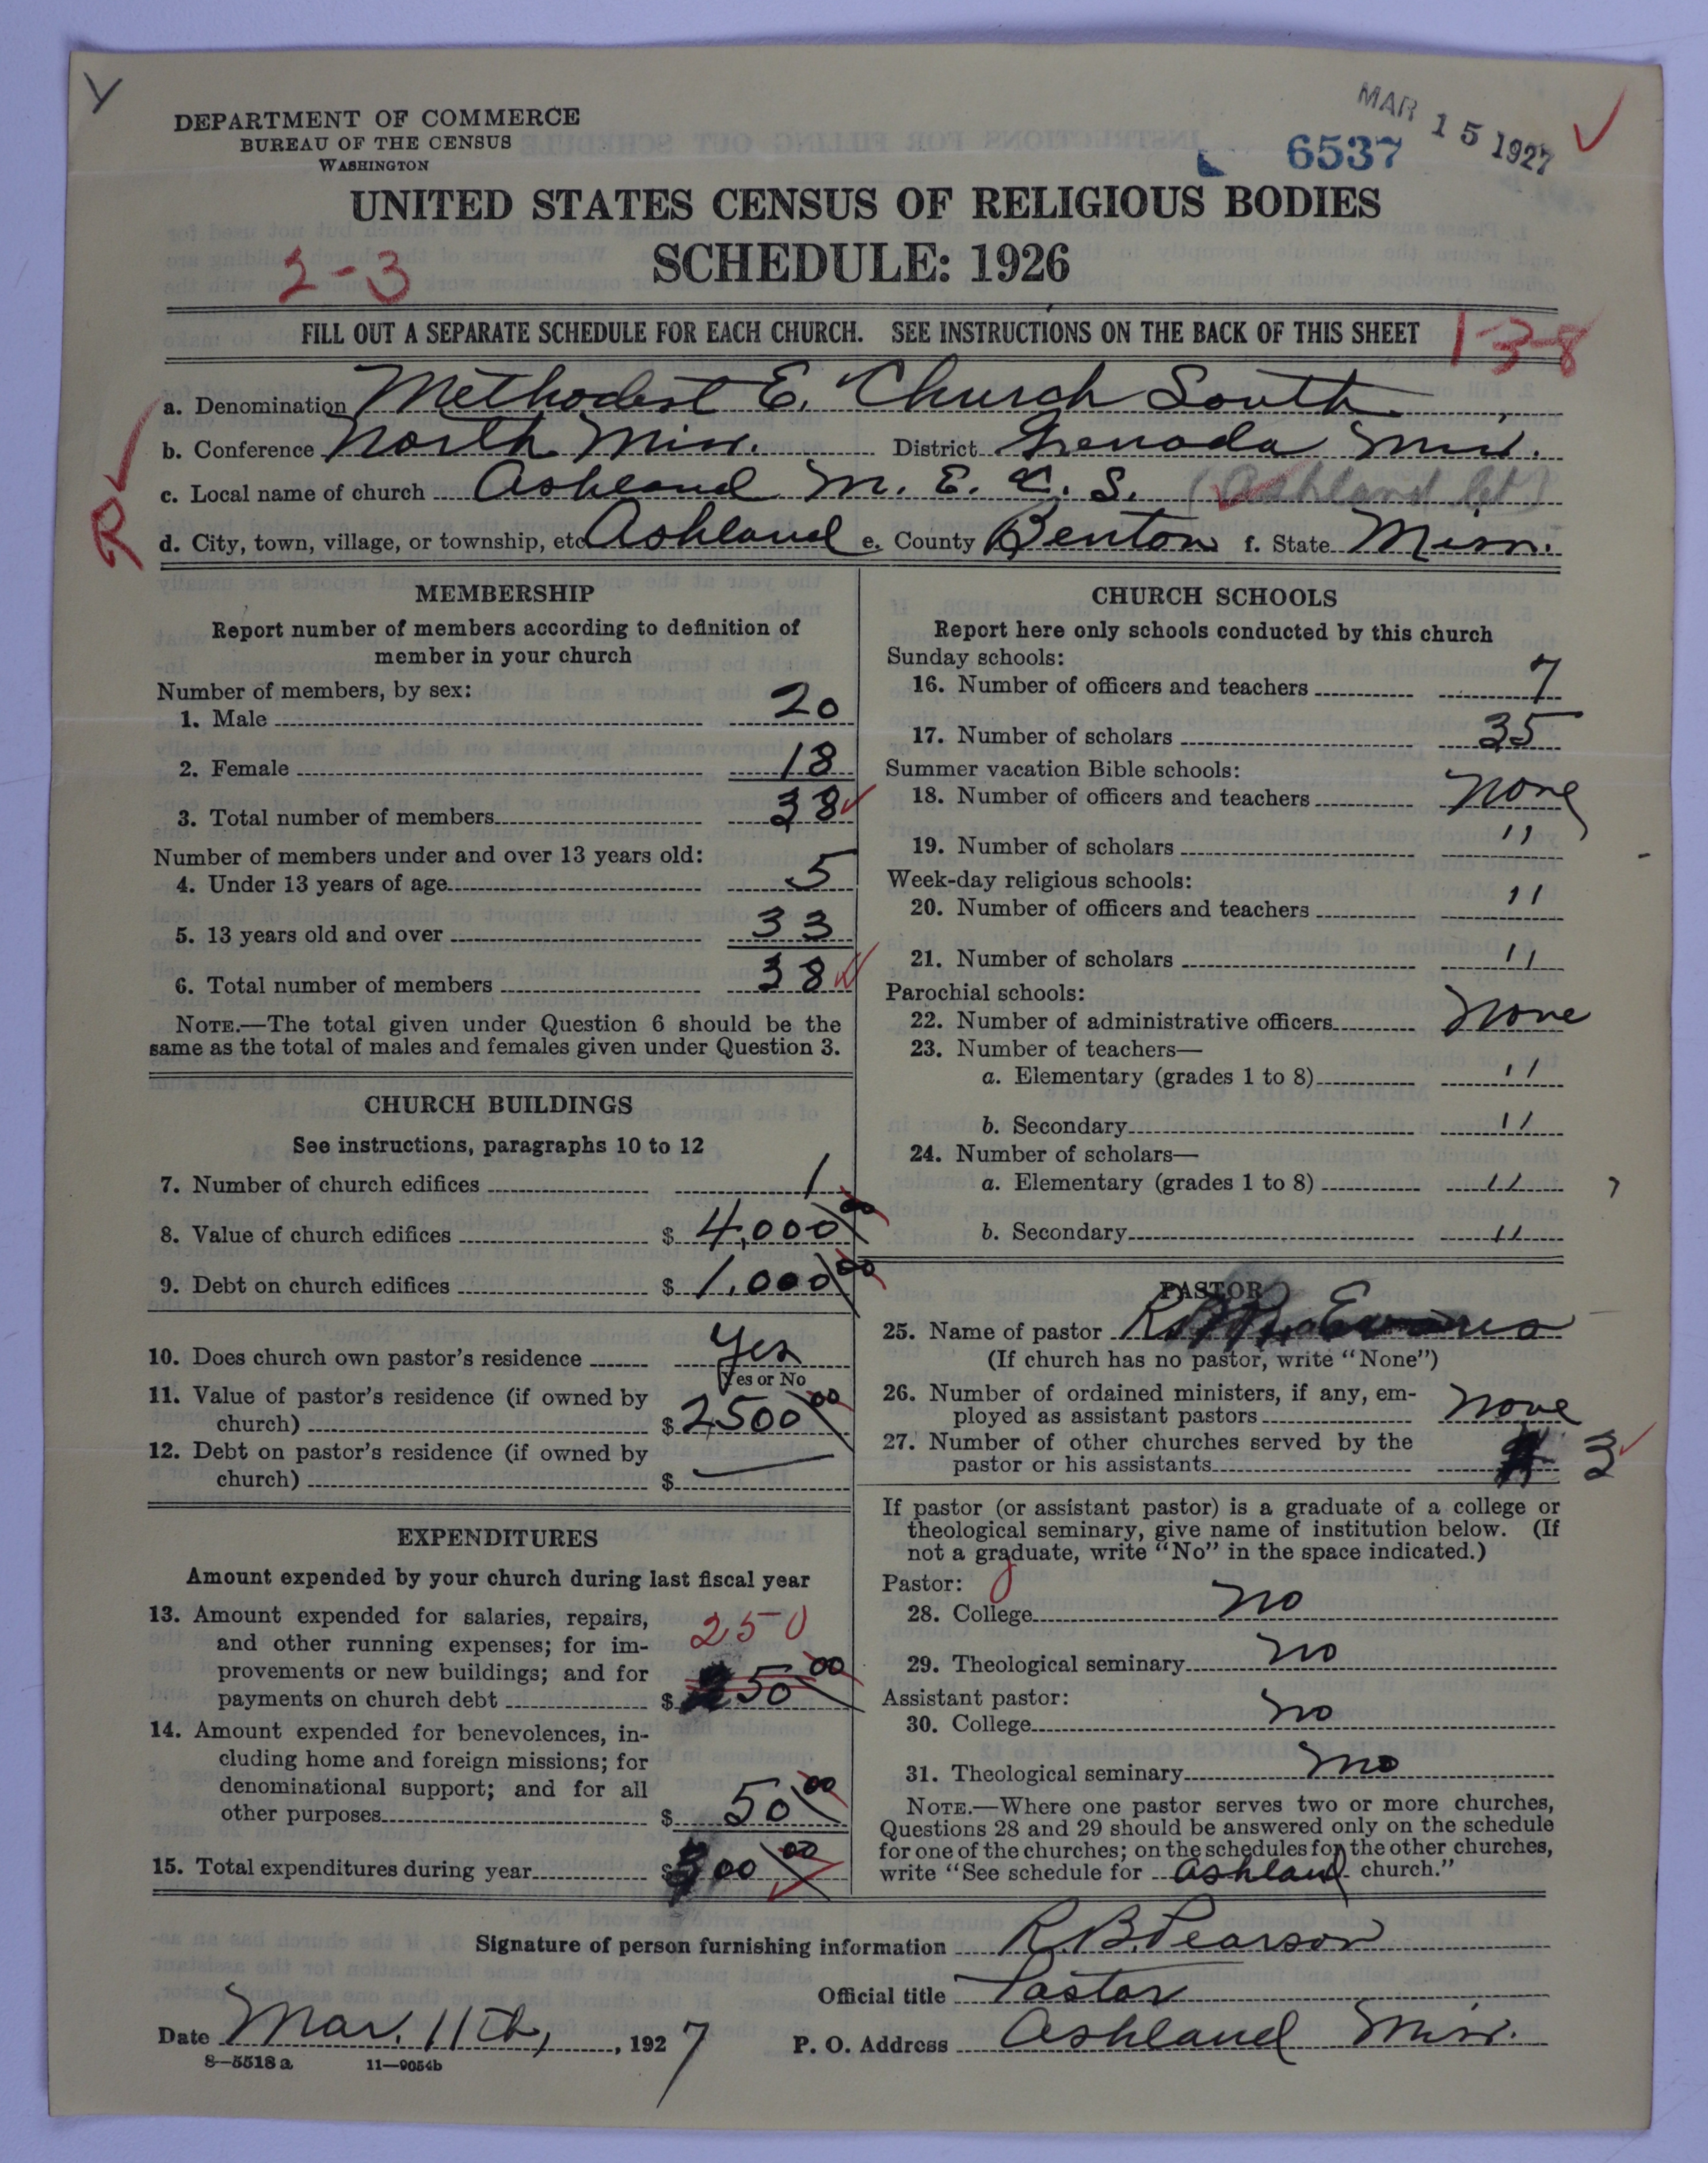 Y
DEPARTMENT OF COMMERCE
BUREAU OF THE CENSUS
WASHINGTON
MAR 15 1927
6537
UNITED STATES CENSUS OF RELIGIOUS BODIES
SCHEDULE: 1926
2-3
FILL OUT A SEPARATE SCHEDULE FOR EACH CHURCH. SEE INSTRUCTIONS ON THE BACK OF THIS SHEET
1-3-8
a. Denomination Methodist E. Church South
b. Conference North Miss. District Grenada Miss.
c. Local name of church Ashland M. E. C. S. (Ashland
R
d. City, town, village, or township, etc Ashland e. County Benton f. State Miss.
MEMBERSHIP
Report number of members according to definition of
member in your church
Number of members, by sex:
1. Male 20
2. Female 18
3. Total number of members 38
Number of members under and over 13 years old:
4. Under 13 years of age 5
5. 13 years old and over 33
6. Total number of members 38
NOTE.—The total given under Question 6 should be the
same as the total of males and females given under Question 3.
CHURCH BUILDINGS
See instructions, paragraphs 10 to 12
7. Number of church edifices 1
8. Value of church edifices $ 4,000 00
9. Debt on church edifices $ 1,000 00
10. Does church own pastor's residence Yes
Yes or No
11. Value of pastor's residence (if owned by
church) $ 2500 00
12. Debt on pastor's residence (if owned by
church) $ —
EXPENDITURES
Amount expended by your church during last fiscal year
13. Amount expended for salaries, repairs,
and other running expenses; for im-
provements or new buildings; and for
payments on church debt $ 250
50 00
14. Amount expended for benevolences, in-
cluding home and foreign missions; for
denominational support; and for all
other purposes $ 50 00
15. Total expenditures during year $ 300 00
CHURCH SCHOOLS
Report here only schools conducted by this church
Sunday schools:
16. Number of officers and teachers 7
17. Number of scholars 35
Summer vacation Bible schools:
18. Number of officers and teachers none
19. Number of scholars 11
Week-day religious schools:
20. Number of officers and teachers 11
21. Number of scholars 11
Parochial schools:
22. Number of administrative officers none
23. Number of teachers—
a. Elementary (grades 1 to 8) 11
b. Secondary 11
24. Number of scholars—
a. Elementary (grades 1 to 8) 11
b. Secondary 11
PASTOR
25. Name of pastor
(If church has no pastor, write "None")
26. Number of ordained ministers, if any, em-
ployed as assistant pastors none
27. Number of other churches served by the
pastor or his assistants 3
If pastor (or assistant pastor) is a graduate of a college or
theological seminary, give name of institution below. (If
not a graduate, write "No" in the space indicated.)
Pastor:
28. College no
29. Theological seminary no
Assistant pastor:
30. College no
31. Theological seminary no
NOTE.—Where one pastor serves two or more churches,
Questions 28 and 29 should be answered only on the schedule
for one of the churches; on the schedules for the other churches,
write "See schedule for Ashland church."
Signature of person furnishing information R.B. Pearson
Official title Pastor
Date Mar. 11th, 1927 P. O. Address Ashland Miss.
8—5518 a 11—9054b